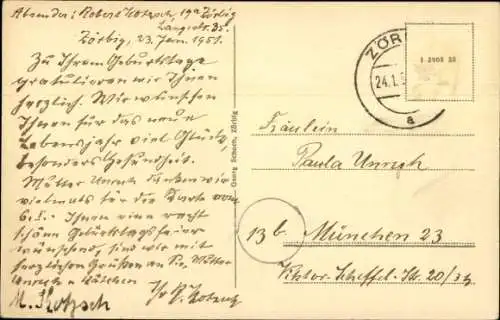 Absender: Robert Kotzsch, 19a Zörbig
Langestr. 35.
Zörbig, 23. Jan. 1951.
Zu Ihrem Geburtstage
gratulieren wir Ihnen
herzlich. Wir wünschen
Ihnen für das neue
Lebensjahr viel Glück,
besonders Gesundheit.
Mutter Unruh danken wir
vielmals für die Karte vom
6.1. Ihnen eine recht
schöne Geburtstagsfeier
wünschend, sind wir mit
herzlichen Grüßen an Sie, Mutter
Unruh u. Käthchen
M. Kotzsch R. Kotzsch
Georg Schoch, Zörbig
ZÖR
24.1.5
a
Fräulein
Paula Unruh
13b. München 23
Viktor-Scheffel-Str. 20/